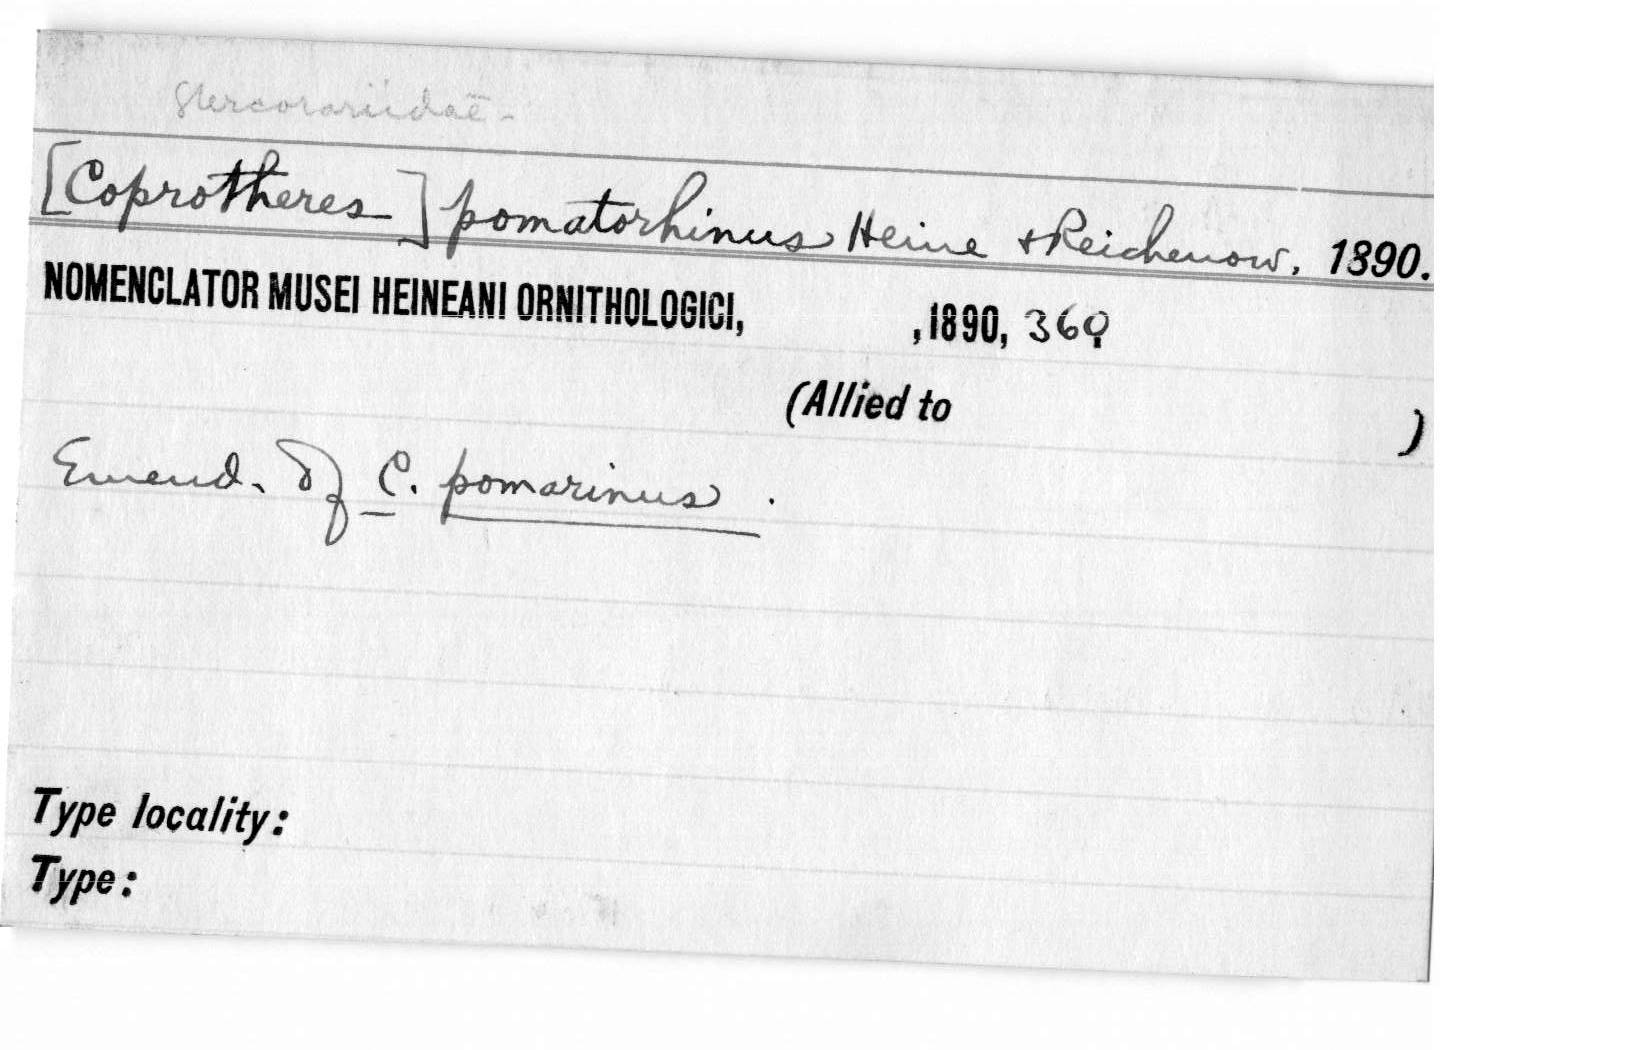 Stercorariidae -
[Coprotheres] pomatorhinus Heine & Reichenow, 1890.
NOMENCLATOR MUSEI HEINEANI ORNITHOLOGICI, , 1890, 369
(Allied to )
Emend. of C. pomarinus .
Type locality:
Type: